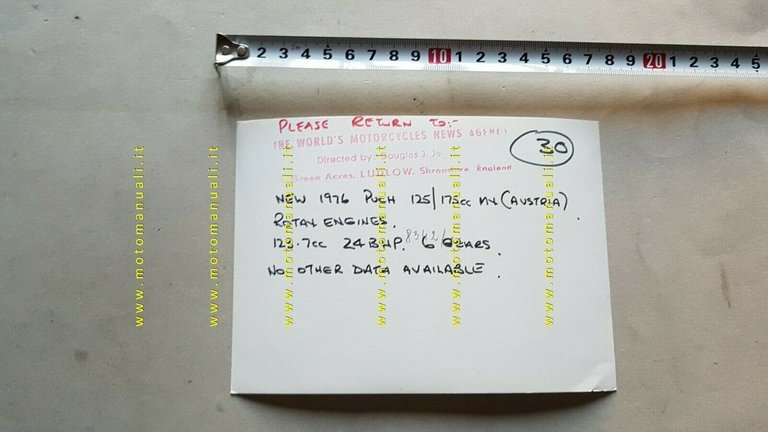 2 3 4 5 6 7 8 9 10 1 2 3 4 5 6 7 8 9 20 1 2 3 4 5
PLEASE RETURN TO:-
THE WORLD'S MOTORCYCLES NEWS AGENCY
30
Directed by: Douglas J. Ja
Green Acres, LUDLOW, Shropshire, England
NEW 1976 PUCH 125/175cc MX (AUSTRIA)
ROTAX ENGINES.
123.7cc 24 BHP. 6 GEARS.
NO OTHER DATA AVAILABLE.
www.motomanuali.it
www.motomanuali.it
www.motomanuali.it
www.motomanuali.it
www.motomanuali.it
www.motomanuali.it